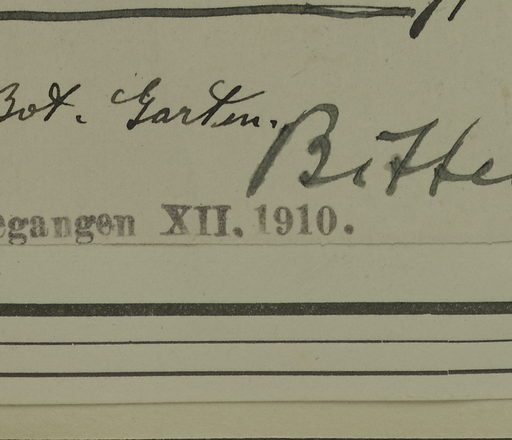 Bot. Garten.
Bitte
egangen XII. 1910.